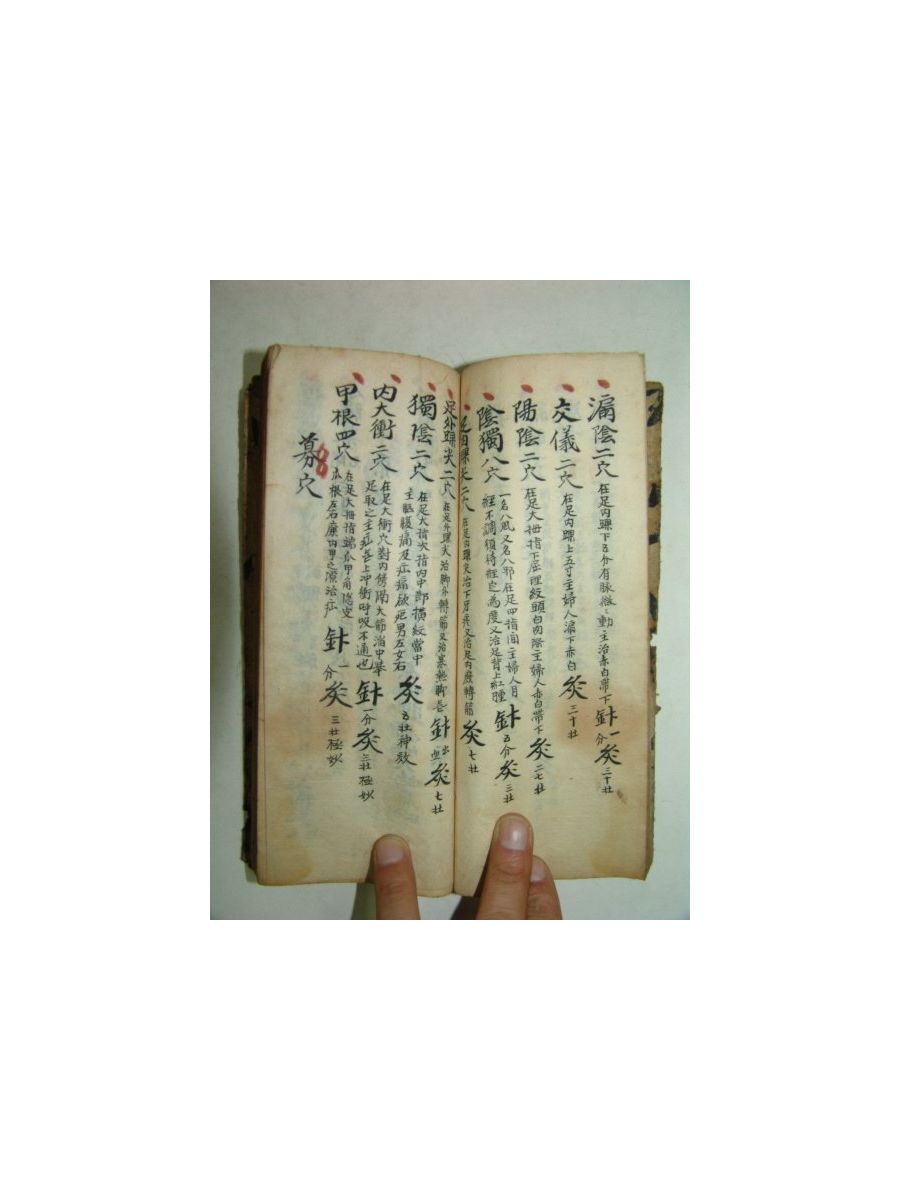 漏陰二穴 在足內踝下五分有脉微〻動主治赤白帶下 針一分 灸三十壯
交儀二穴 在足內踝上五寸主婦人漏下赤白 灸三十壯
陽陰二穴 在足大拇指下屈理紋頭白肉際主婦人赤白帶下 灸二七壯
陰獨八穴 一名八風又名八邪在足四指間主婦人月經不調須待經定為度又治足背上紅腫 針五分 灸三壯
足內踝尖二穴 在足內踝尖治下牙疼又治足內廉轉筋 灸七壯
足外踝尖二穴 在足外踝尖治脚外轉筋又治寒熱脚氣 針出血 灸七壯
獨陰二穴 在足大指次指內中節橫紋當中主腹痛及疝痛欲死男左女右 灸五壯神效
內大衝二穴 在足大衝穴對內傍隔大筋陷中舉足取之主疝氣上冲衝時吸不通也 針一分 灸三壯極妙
甲根四穴 在足大拇指端爪甲角隱皮爪根左右廉內甲之際治疝 針一分 灸三壯極妙
募穴